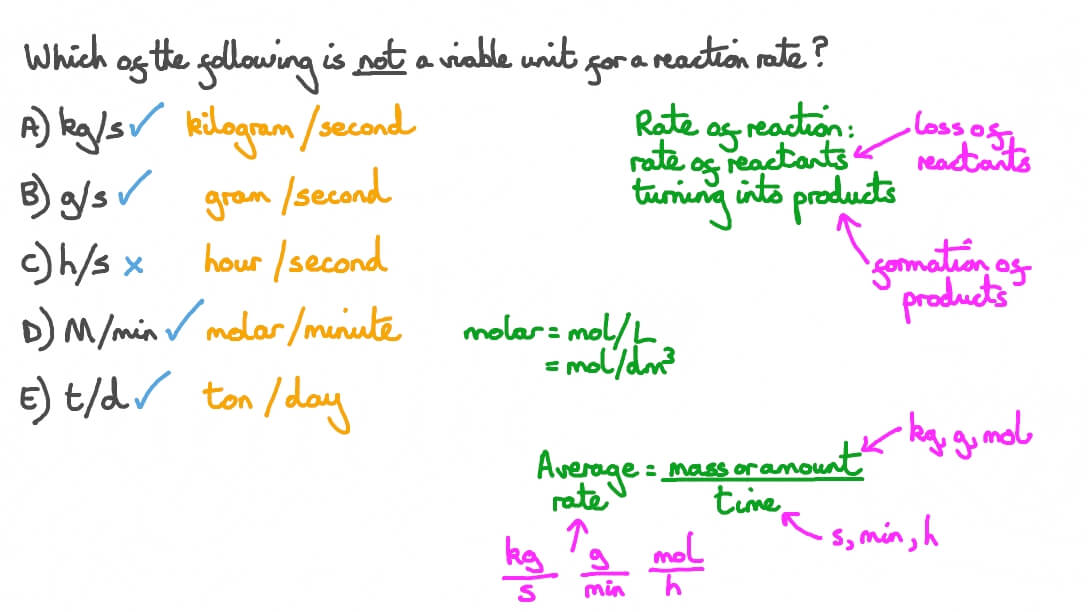 Which of the following is not a viable unit for a reaction rate?
A) kg/s ✓ kilogram/second
B) g/s ✓ gram/second
C) h/s × hour/second
D) M/min ✓ molar/minute
E) t/d ✓ ton/day
Rate of reaction:
rate of reactants
turning into products
loss of
reactants
formation of
products
molar = mol/L
= mol/dm³
Average rate = mass or amount / time
kg, g, mol
s, min, h
kg/s g/min mol/h